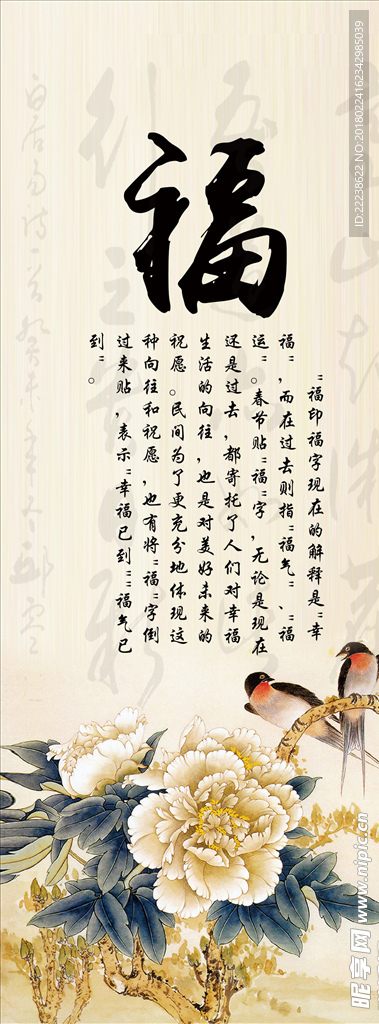 福
"福印福字现在的解释是"幸
福",而在过去则指"福气"、"福
运"。春节贴"福"字,无论是现在
还是过去,都寄托了人们对幸福
生活的向往,也是对美好未来的
祝愿。民间为了更充分地体现这
种向往和祝愿,也有将"福"字倒
过来贴,表示"幸福已到""福气已
到"。
ID:22238622 NO:20180224162342985039
昵享网 www.nipic.cn